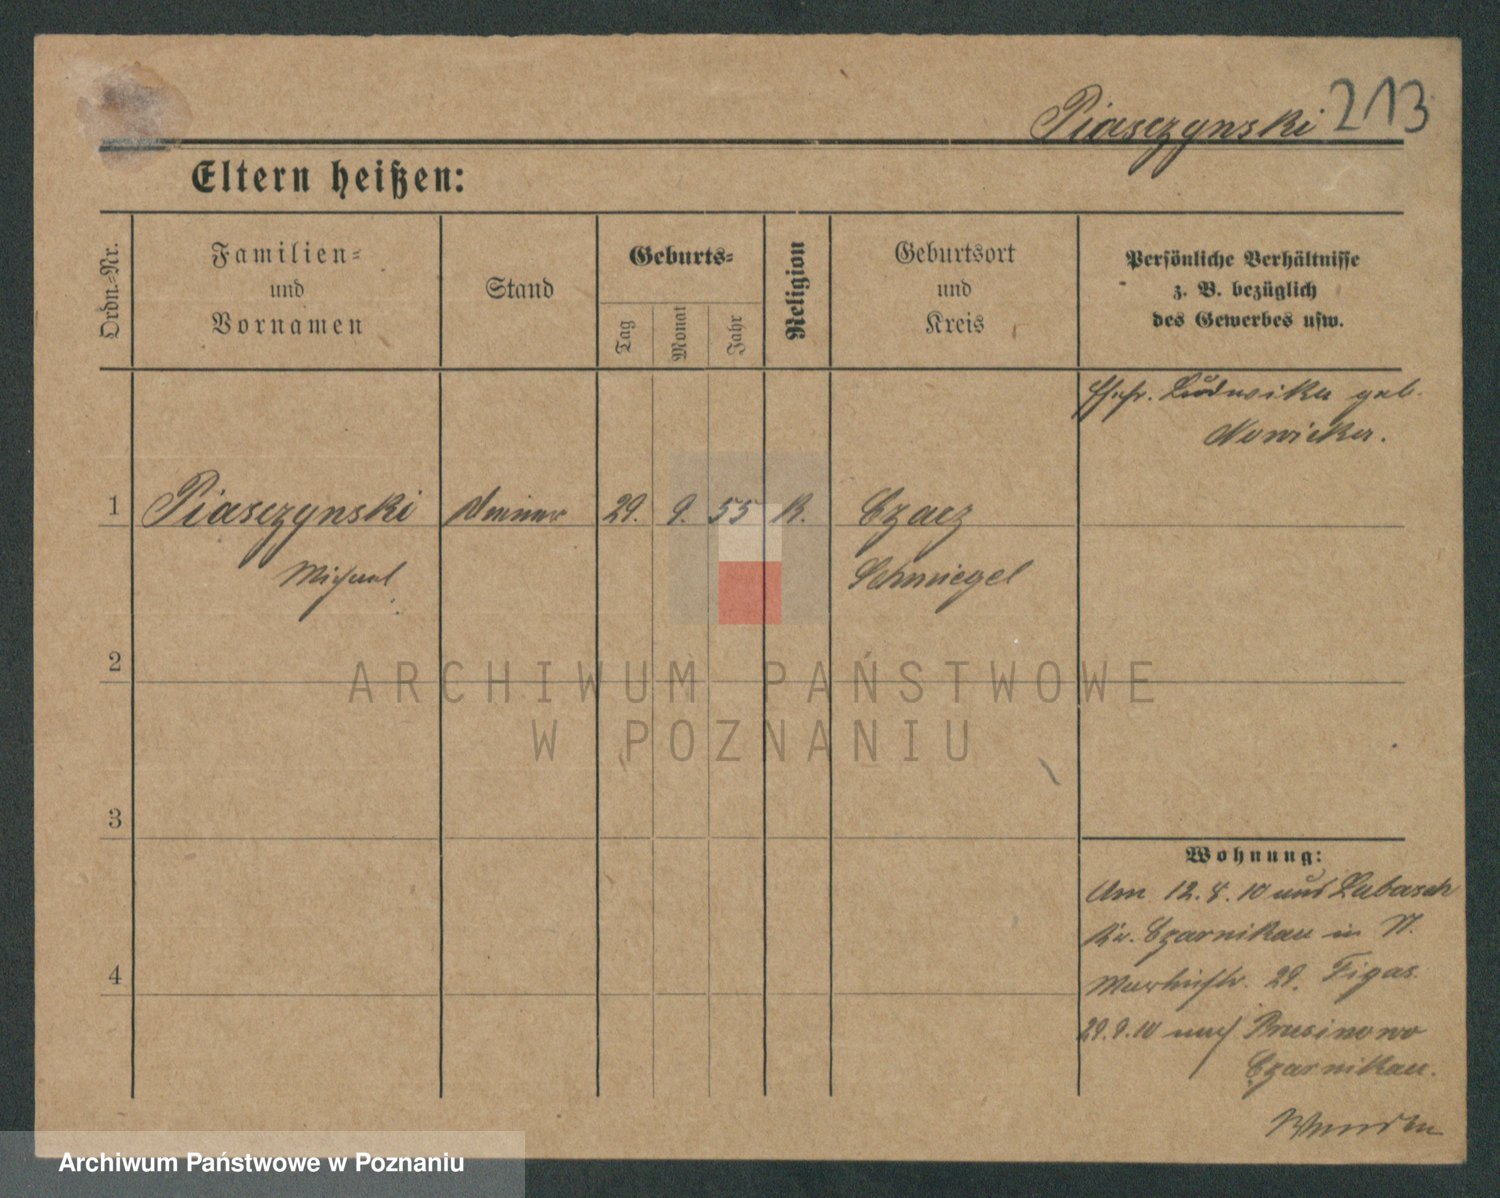 Piasczynski 213
Eltern heißen:
Ordn.-Nr.
Familien-
und
Vornamen
Stand
Geburts-
Tag
Monat
Jahr
Religion
Geburtsort
und
Kreis
Persönliche Verhältnisse
z. B. bezüglich
des Gewerbes usw.
Ehefr. Ludwika geb.
Nowicka.
1 Piasczynski 29. 9. 55 K. Czacz
Michael Schmiegel
2
3
4
Wohnung:
Am 12.8.10 aus Lubasch
Kr. Czarnikau in N.
29. Figas.
29.9.10 nach Prusinowo
Czarnikau.
ARCHIWUM PAŃSTWOWE
W POZNANIU
Archiwum Państwowe w Poznaniu